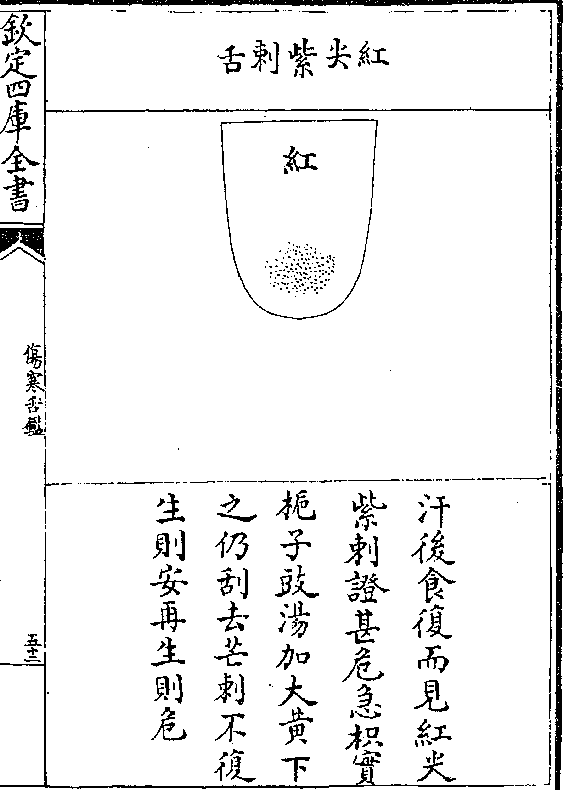 紅尖紫刺舌
紅
汗後食復而見紅尖
紫刺證甚危急枳實
梔子豉湯加大黃下
之仍刮去芒刺不復
生則安再生則危
欽定四庫全書
傷寒舌鑑
五十二